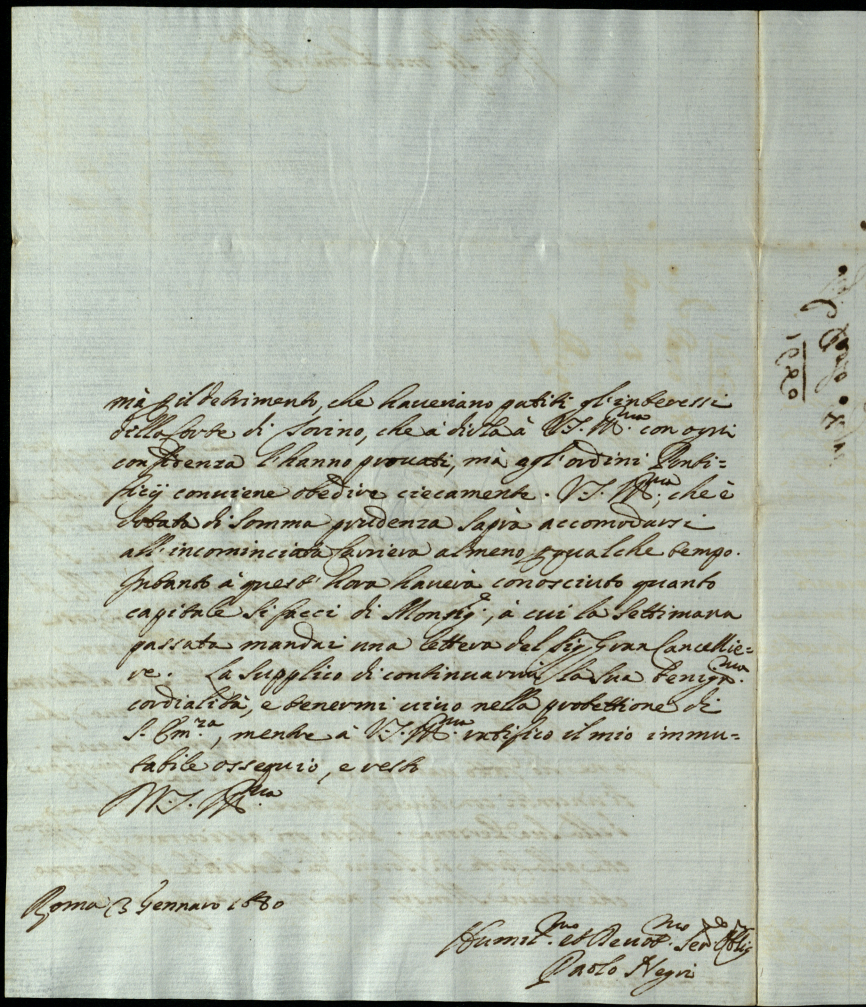 mà p il detrimento, che haveriano patiti gl'interessi
della Corte di Torino, che à dirla à V.S. Ill.ma con ogni
confidenza l'hanno provati, mà agl'ordini Ponti=
ficij conviene obedire ciecamente. V.S. Ill.ma, che è
dotata di somma prudenza saprà accomodarsi
all'incominciata Carriera almeno p qualche tempo.
Intanto à quest'hora haverà conosciuto quanto
capitale si facci di Monsig.e, à cui la settimana
passata mandai una lettera del Sig Gran Cancellie=
re. La supplico di continuarmi la sua benign.ma
cordialità, e tenermi vivo nella protettione di
S. Em.za, mentre à V.S. Ill.ma ratifico il mio immu=
tabile ossequio, e resto
V.S. Ill.ma
Roma 3 Gennaro 1680
Humil.mo et Devot.mo Ser.
Paolo Negri
1680